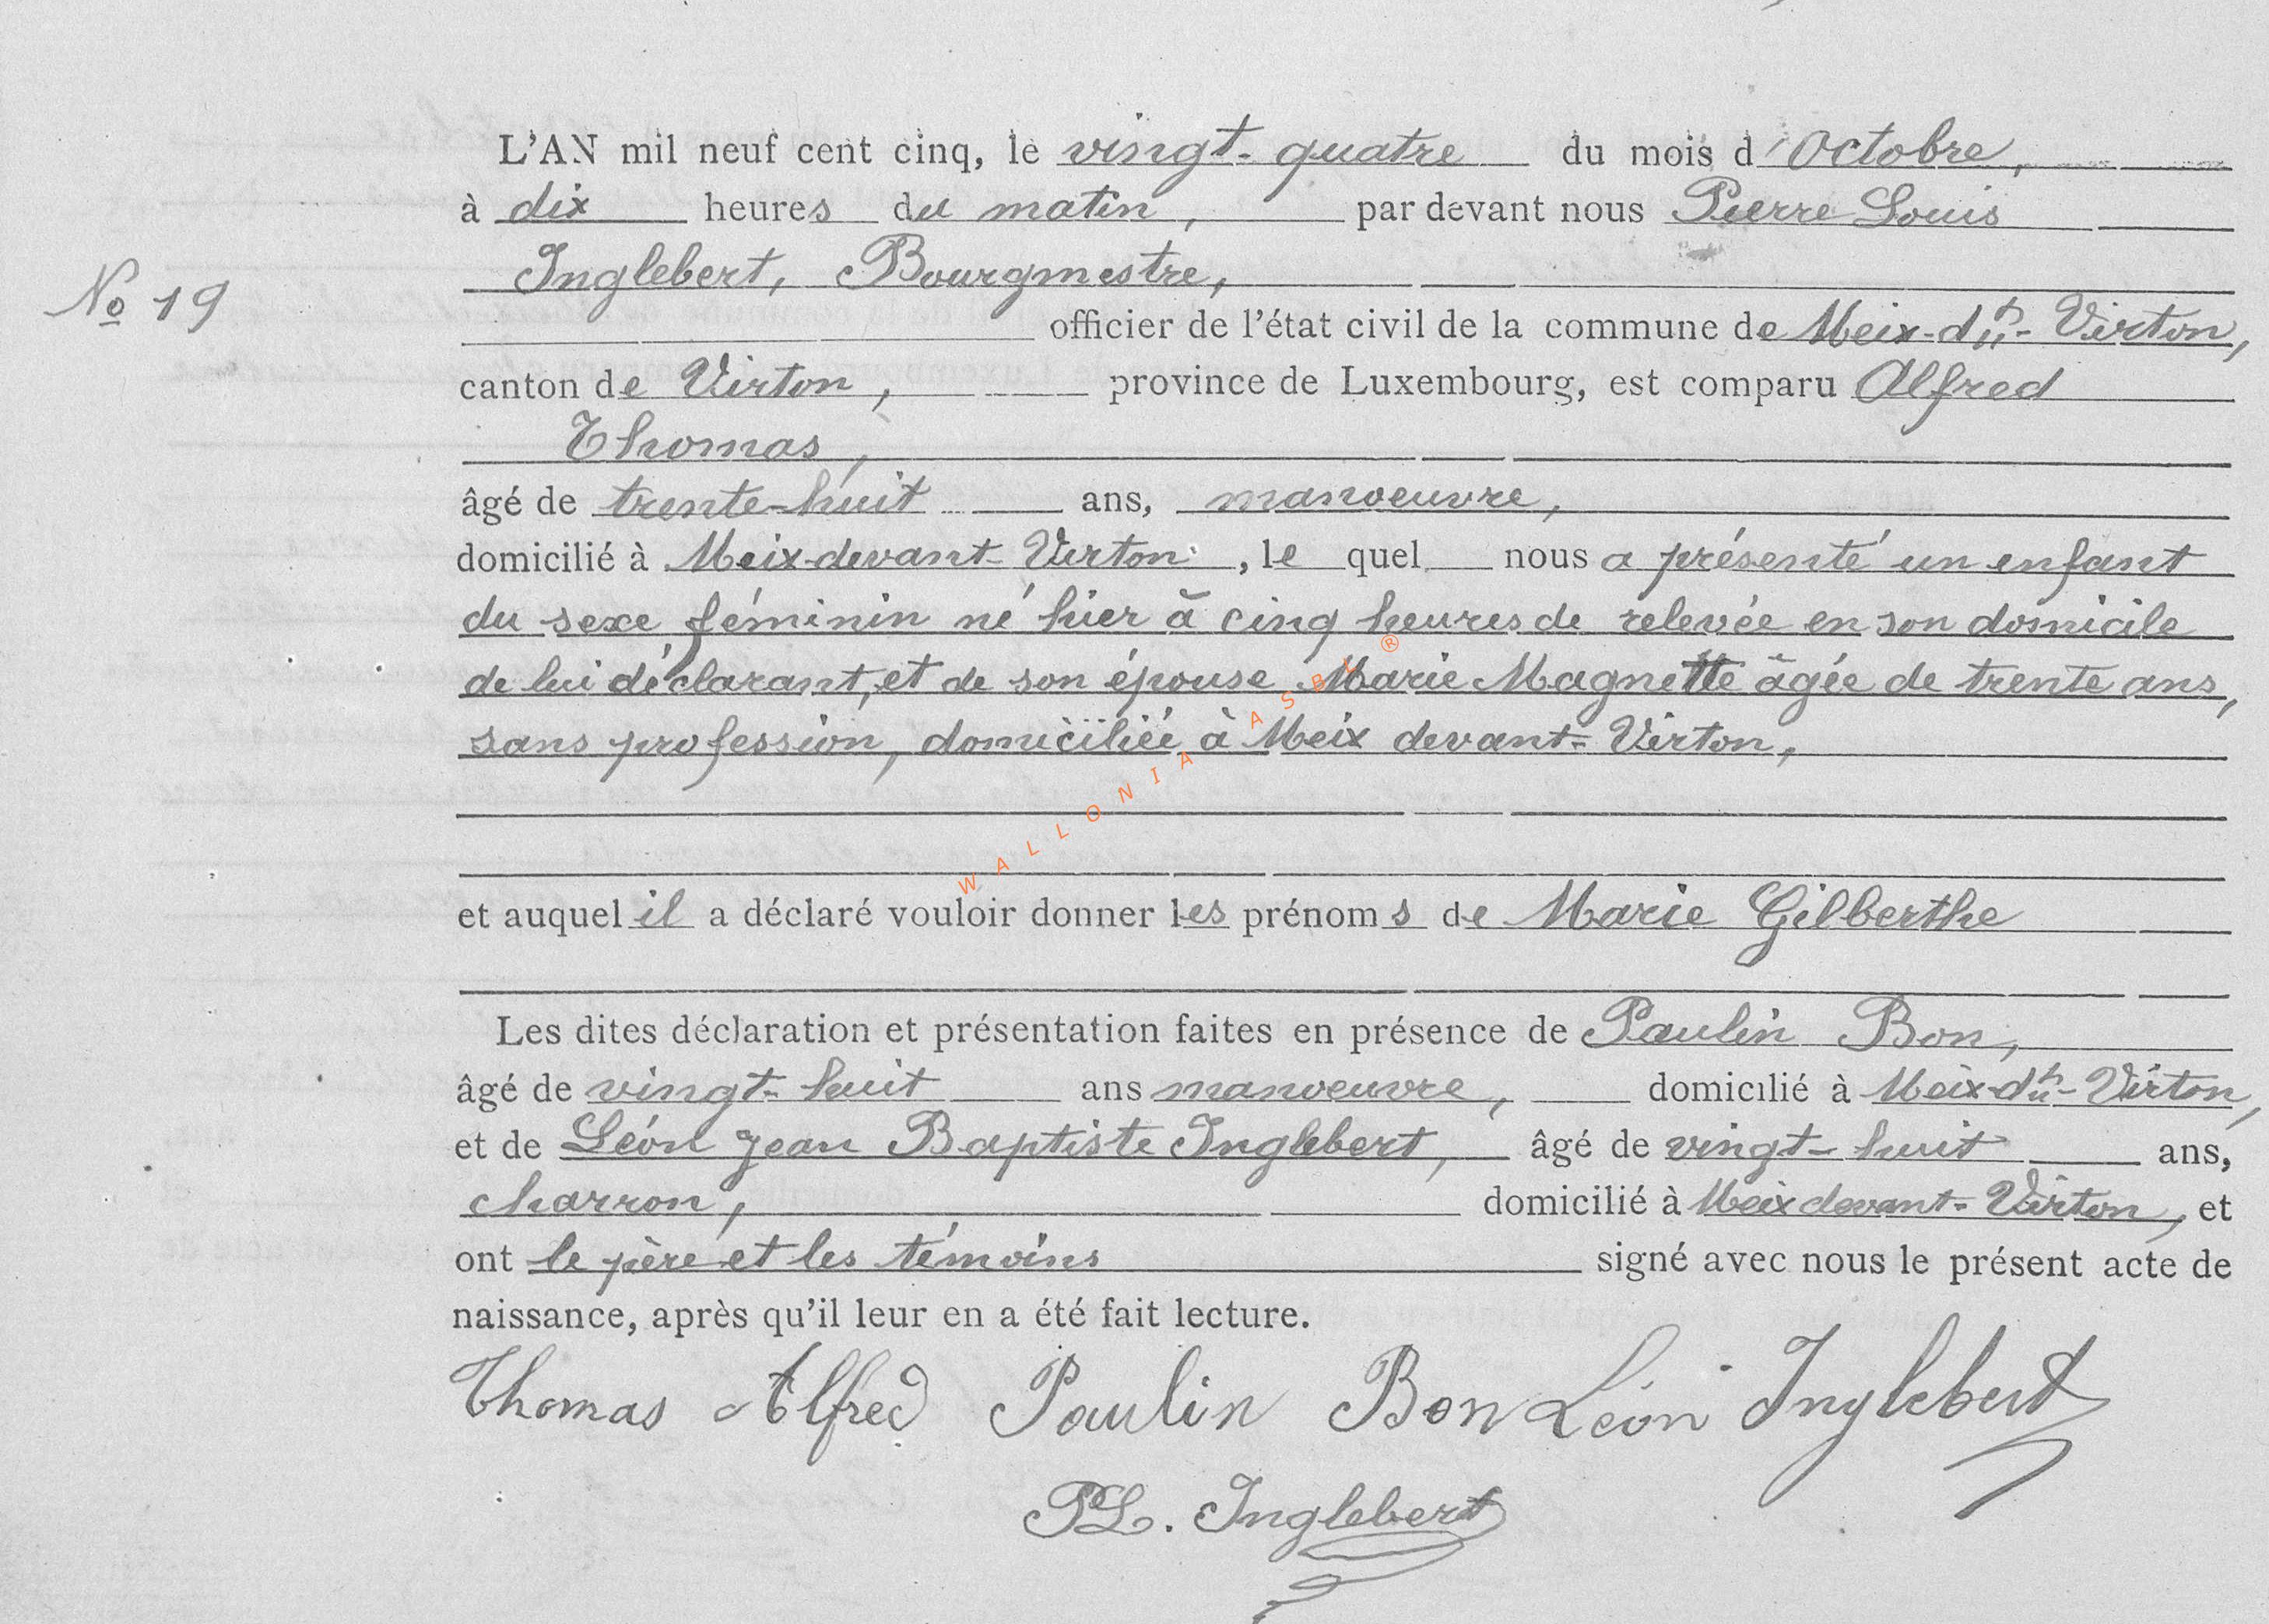 L'AN mil neuf cent cinq, le vingt-quatre du mois d'Octobre,
à dix heures du matin, par devant nous Pierre Louis
Inglebert, Bourgmestre,
No 19
officier de l'état civil de la commune de Meix-dt-Virton,
canton de Virton, province de Luxembourg, est comparu Alfred
Thomas,
âgé de trente-huit ans, manoeuvre,
domicilié à Meix-devant-Virton, le quel nous a présenté un enfant
du sexe féminin né hier à cinq heures de relevée en son domicile
de lui déclarant, et de son épouse Marie Magnette âgée de trente ans,
sans profession, domiciliée à Meix devant-Virton,
WALLONIA ASBL ®
et auquel il a déclaré vouloir donner les prénoms de Marie Gilberthe
Les dites déclaration et présentation faites en présence de Paulin Bon,
âgé de vingt-huit ans manoeuvre, domicilié à Meix-dt-Virton,
et de Léon Jean Baptiste Inglebert, âgé de vingt-huit ans,
charron, domicilié à Meix devant-Virton, et
ont le père et les témoins signé avec nous le présent acte de
naissance, après qu'il leur en a été fait lecture.
Thomas Alfred Paulin Bon Léon Inglebert
PL. Inglebert